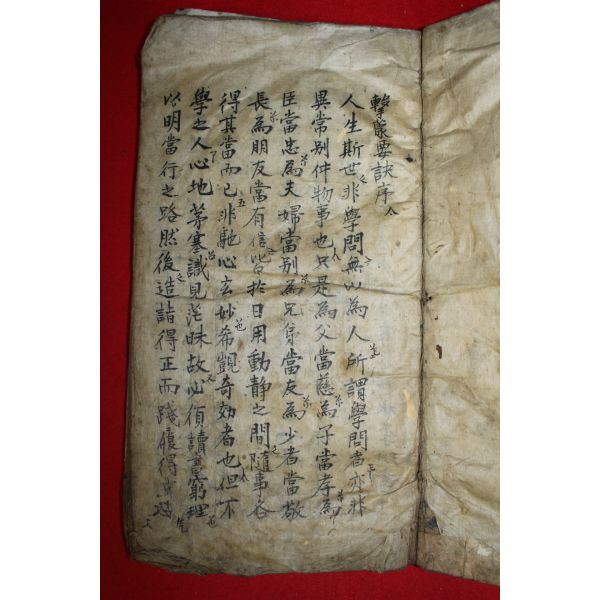 擊蒙要訣序
人生斯世非學問無以為人所謂學問者亦非
異常別件物事也只是為父當慈為子當孝為
臣當忠為夫婦當別為兄弟當友為少者當敬
長為朋友當有信皆於日用動靜之間隨事各
得其當而已非馳心玄妙希觀奇効者也但不
學之人心地茅塞識見茫昧故必須讀書窮理
以明當行之路然後造詣得正而踐履得